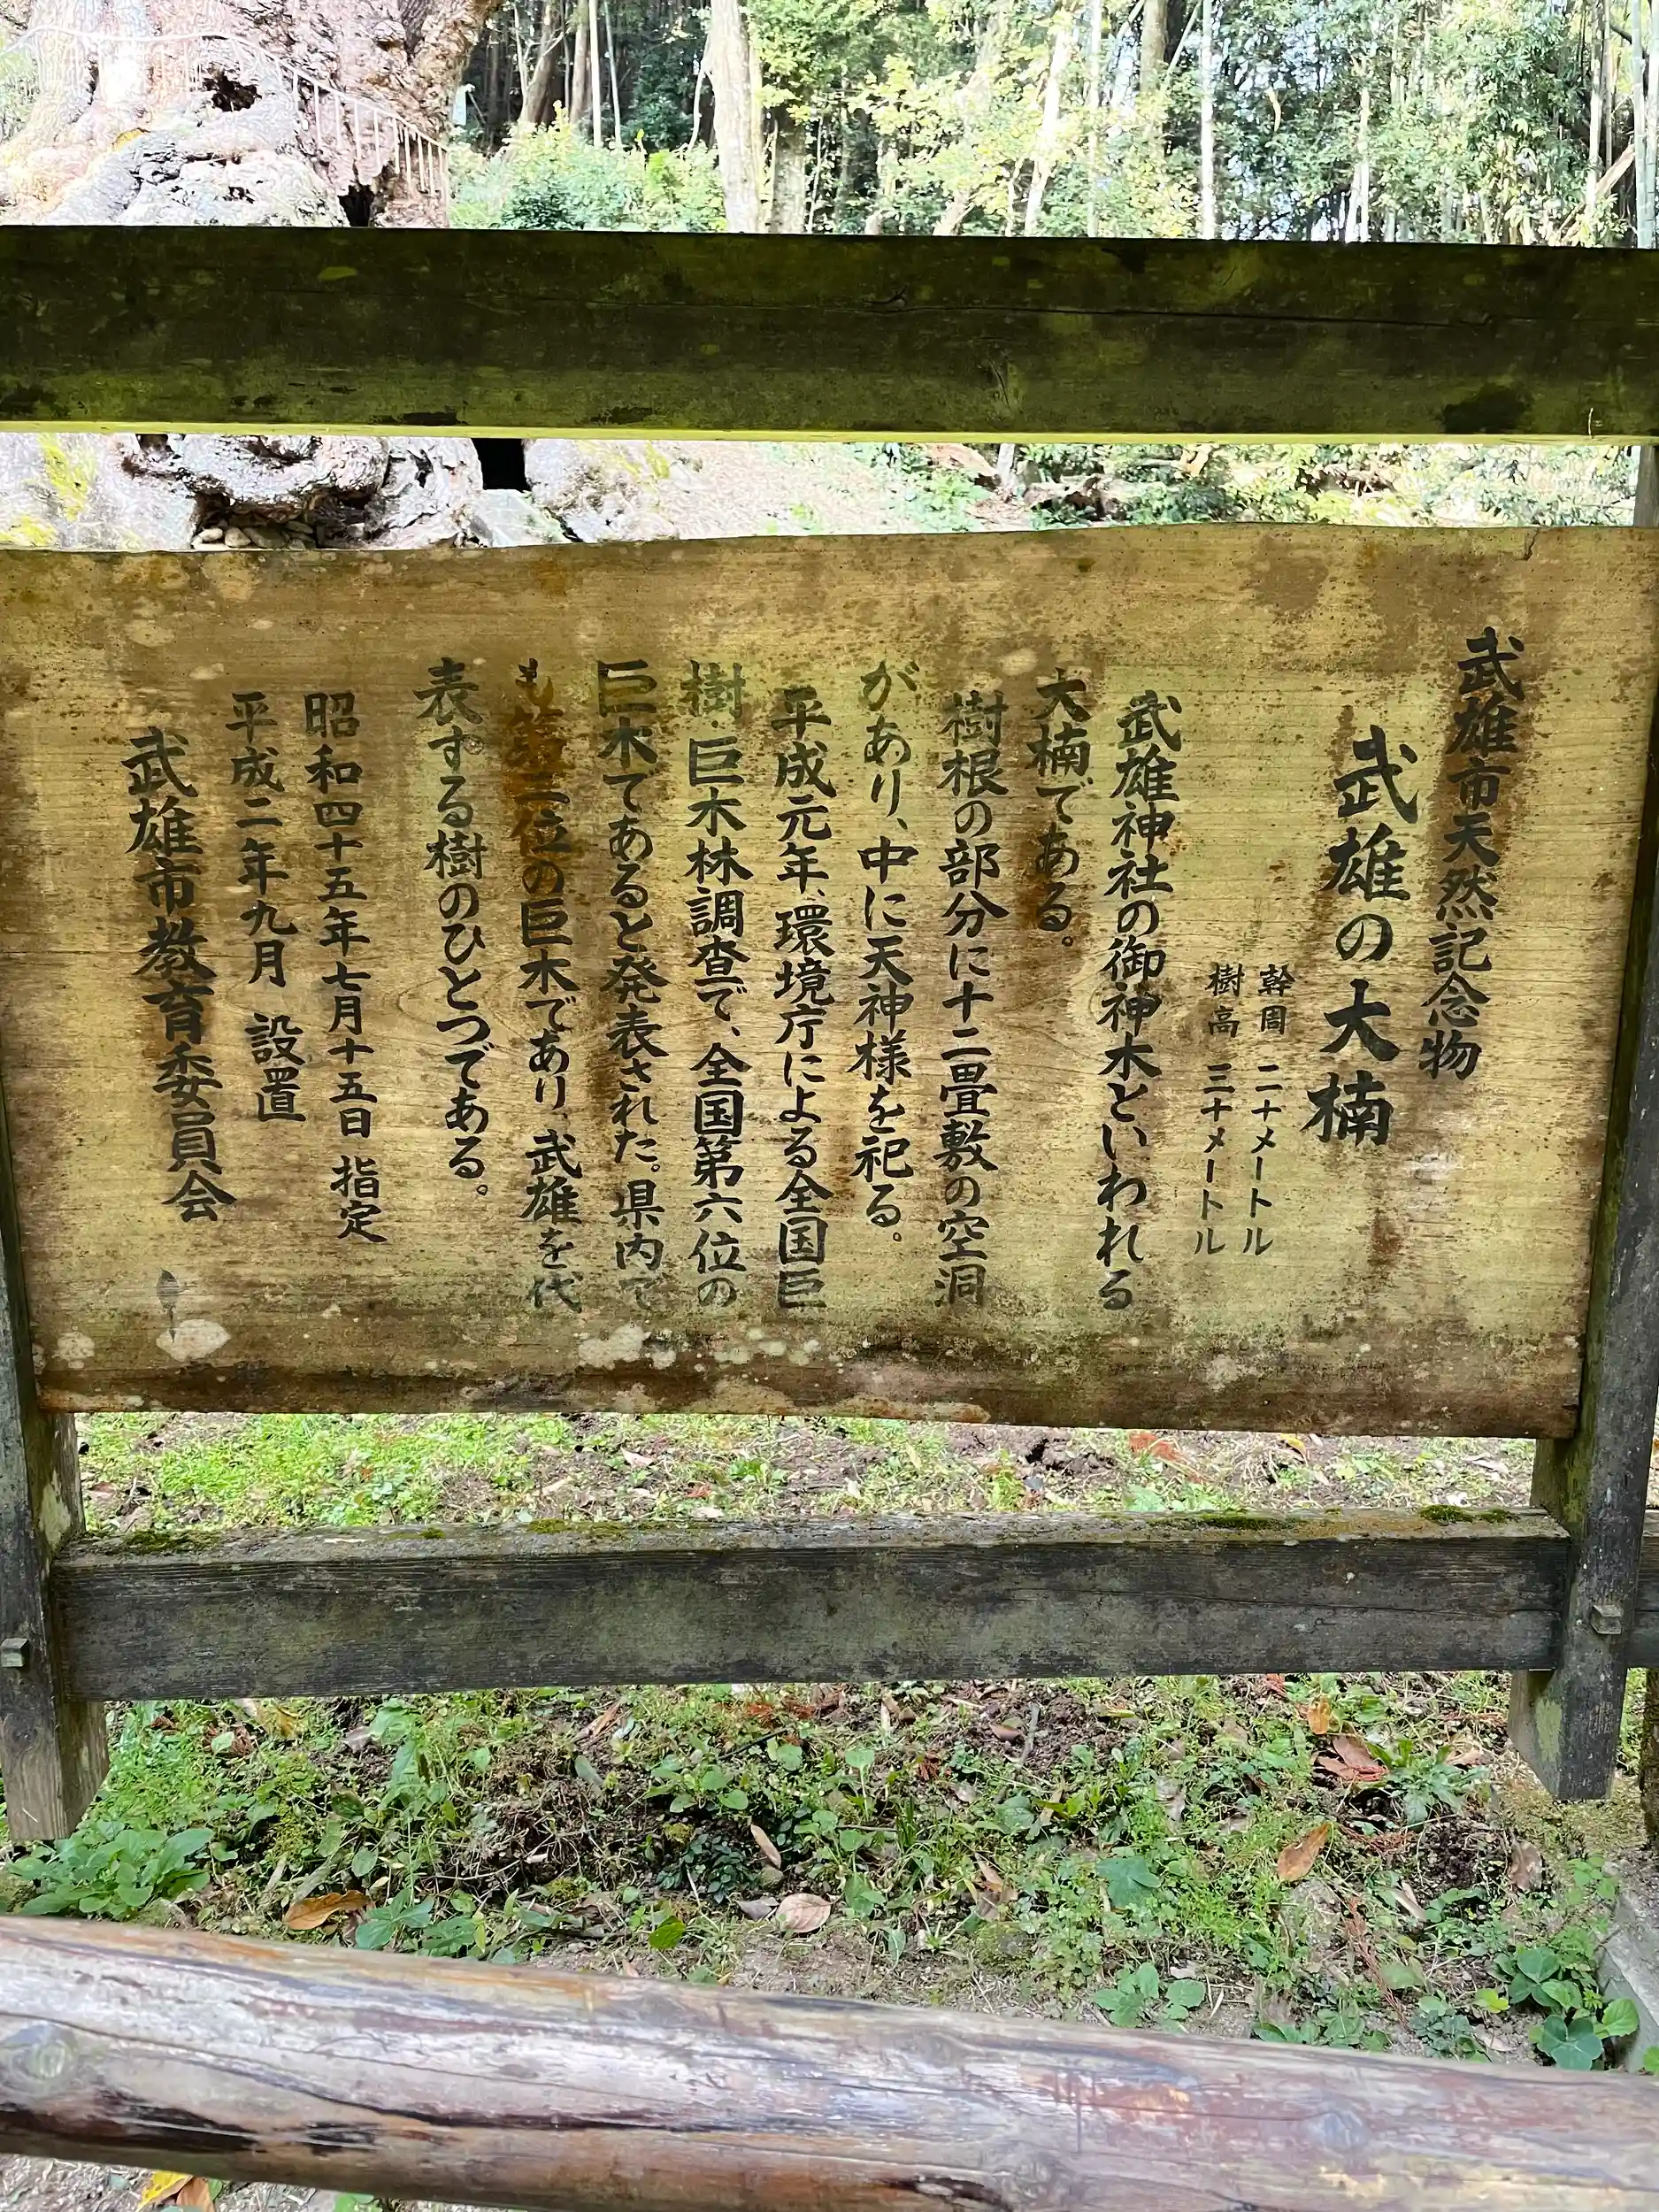 武雄市天然記念物
武雄の大楠
幹周 二十メートル
樹高 三十メートル
武雄神社の御神木といわれる
大楠である。
樹根の部分に十二畳敷の空洞
があり、中に天神様を祀る。
平成元年、環境庁による全国巨
樹・巨木林調査で、全国第六位の
巨木であると発表された。県内で
も第二位の巨木であり、武雄を代
表する樹のひとつである。
昭和四十五年七月十五日 指定
平成二年九月 設置
武雄市教育委員会